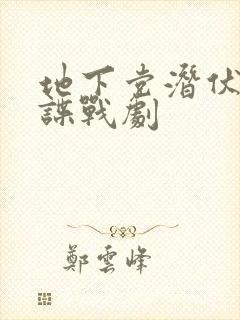 地下党潛伏
諜戰劇
鄭雲峰